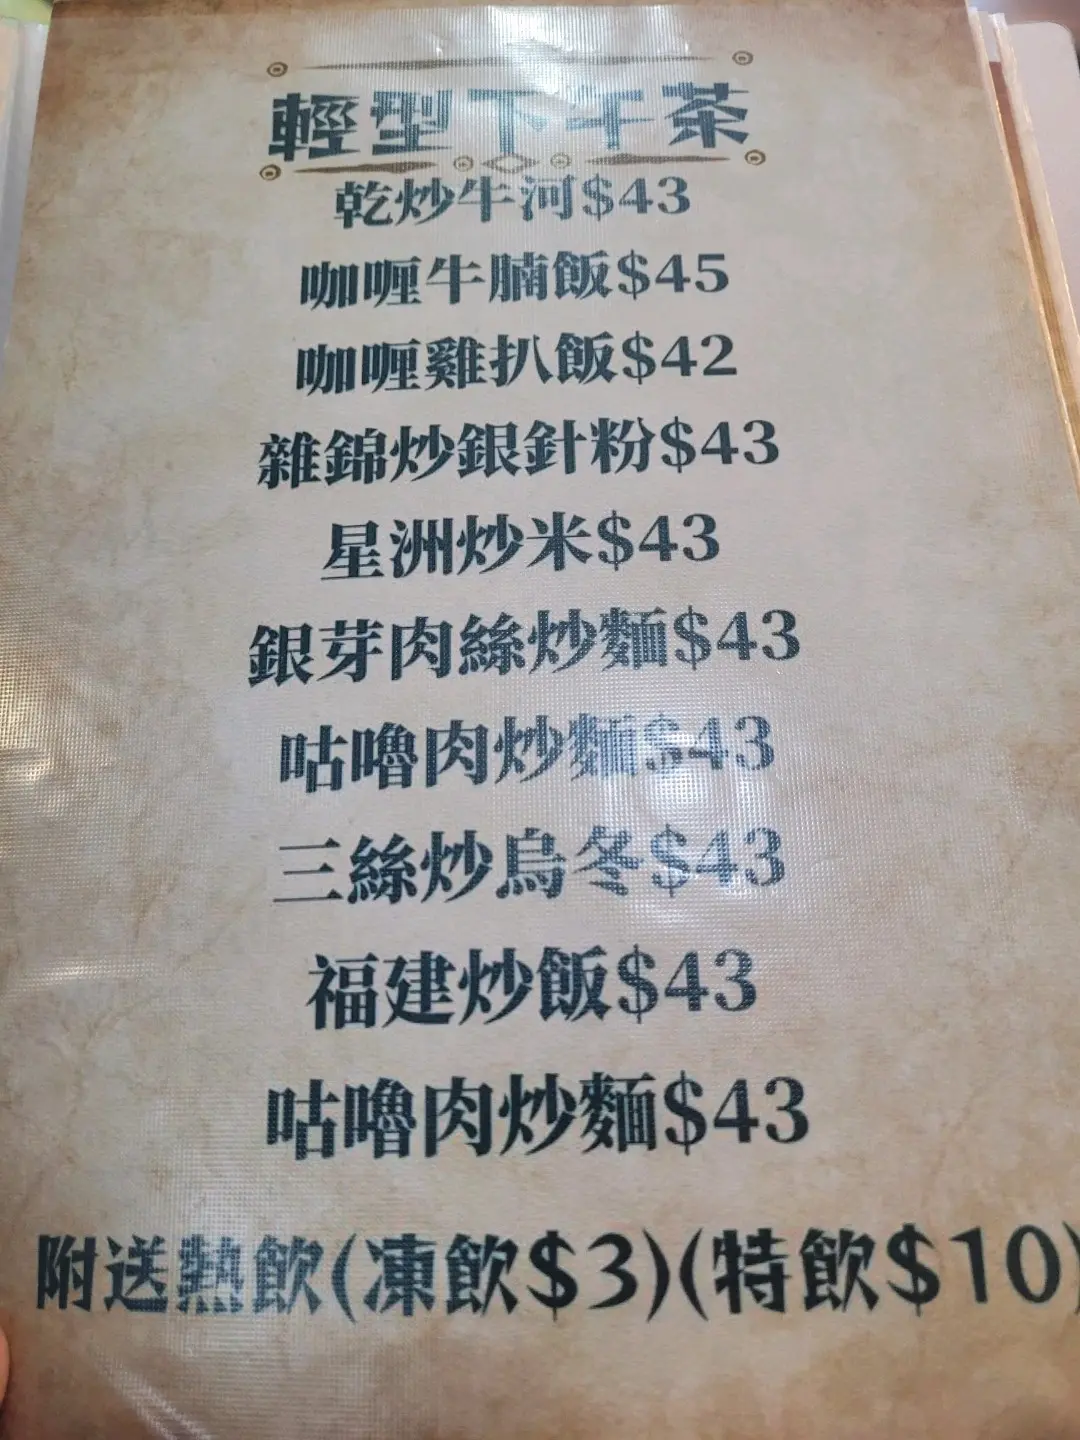 輕型下午茶
乾炒牛河$43
咖喱牛腩飯$45
咖喱雞扒飯$42
雜錦炒銀針粉$43
星洲炒米$43
銀芽肉絲炒麵$43
咕嚕肉炒麵$43
三絲炒烏冬$43
福建炒飯$43
咕嚕肉炒麵$43
附送熱飲(凍飲$3)(特飲$10)